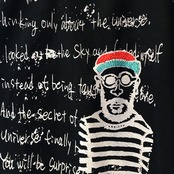 thinking only about the universe.
looked at the Sky and myself
instead of being
And the secret of
Universe finally
You will be surprise